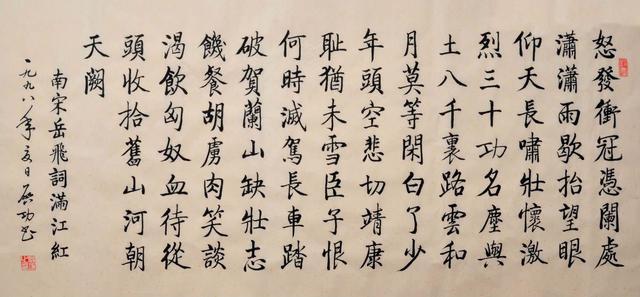 怒發衝冠憑闌處
瀟瀟雨歇抬望眼
仰天長嘯壯懷激
烈三十功名塵與
土八千裏路雲和
月莫等閑白了少
年頭空悲切靖康
耻猶未雪臣子恨
何時滅駕長車踏
破賀蘭山缺壯志
饑餐胡虜肉笑談
渴飲匈奴血待從
頭收拾舊山河朝
天闕
南宋岳飛詞滿江紅
一九九八年夏日启功书